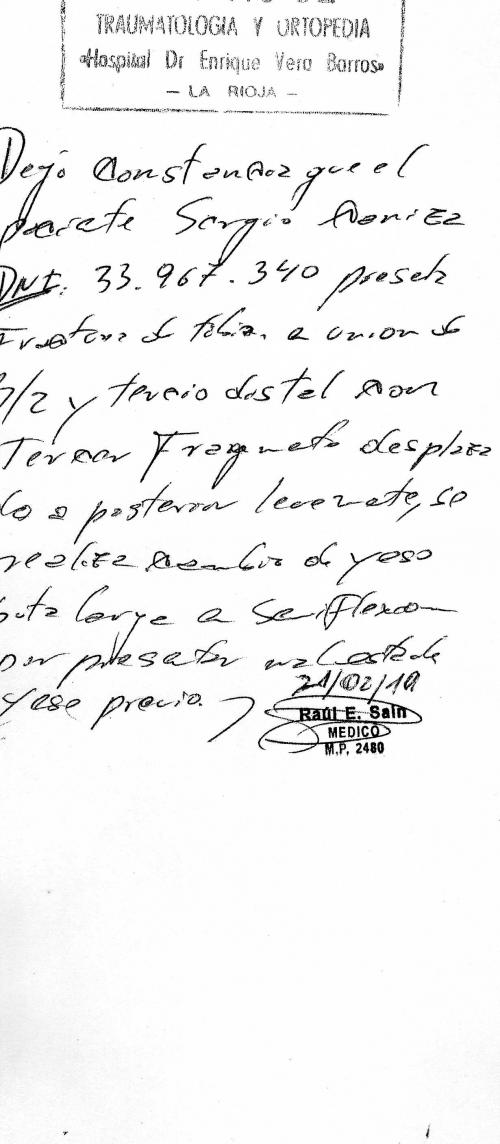 TRAUMATOLOGIA Y ORTOPEDIA
«Hospital Dr Enrique Vera Barros»
— LA RIOJA —
Dejo Constancia que el
paciete Sergio
DNI. 33.967.340 preseta
Fractura de tibia. a union de
1/2 y tercio distal con
Tercer Fragmeto desplaza
do a posterior levemete, se
realiza cambio de yeso
bota larga a Semiflexion
por presetar mal estado de
yeso previo.
21/02/19
Raúl E. Saln
MEDICO
M.P. 2480